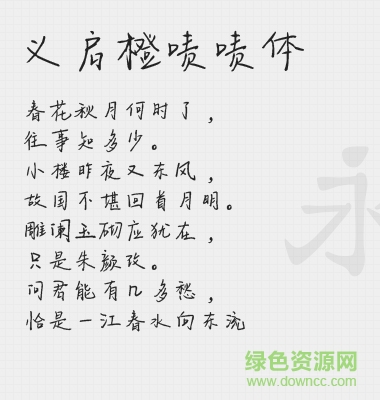 义启橙啧啧体
春花秋月何时了，
往事知多少。
小楼昨夜又东风，
故国不堪回首月明。
雕阑玉砌应犹在，
只是朱颜改。
问君能有几多愁，
恰是一江春水向东流
永
绿色资源网
www.downcc.com